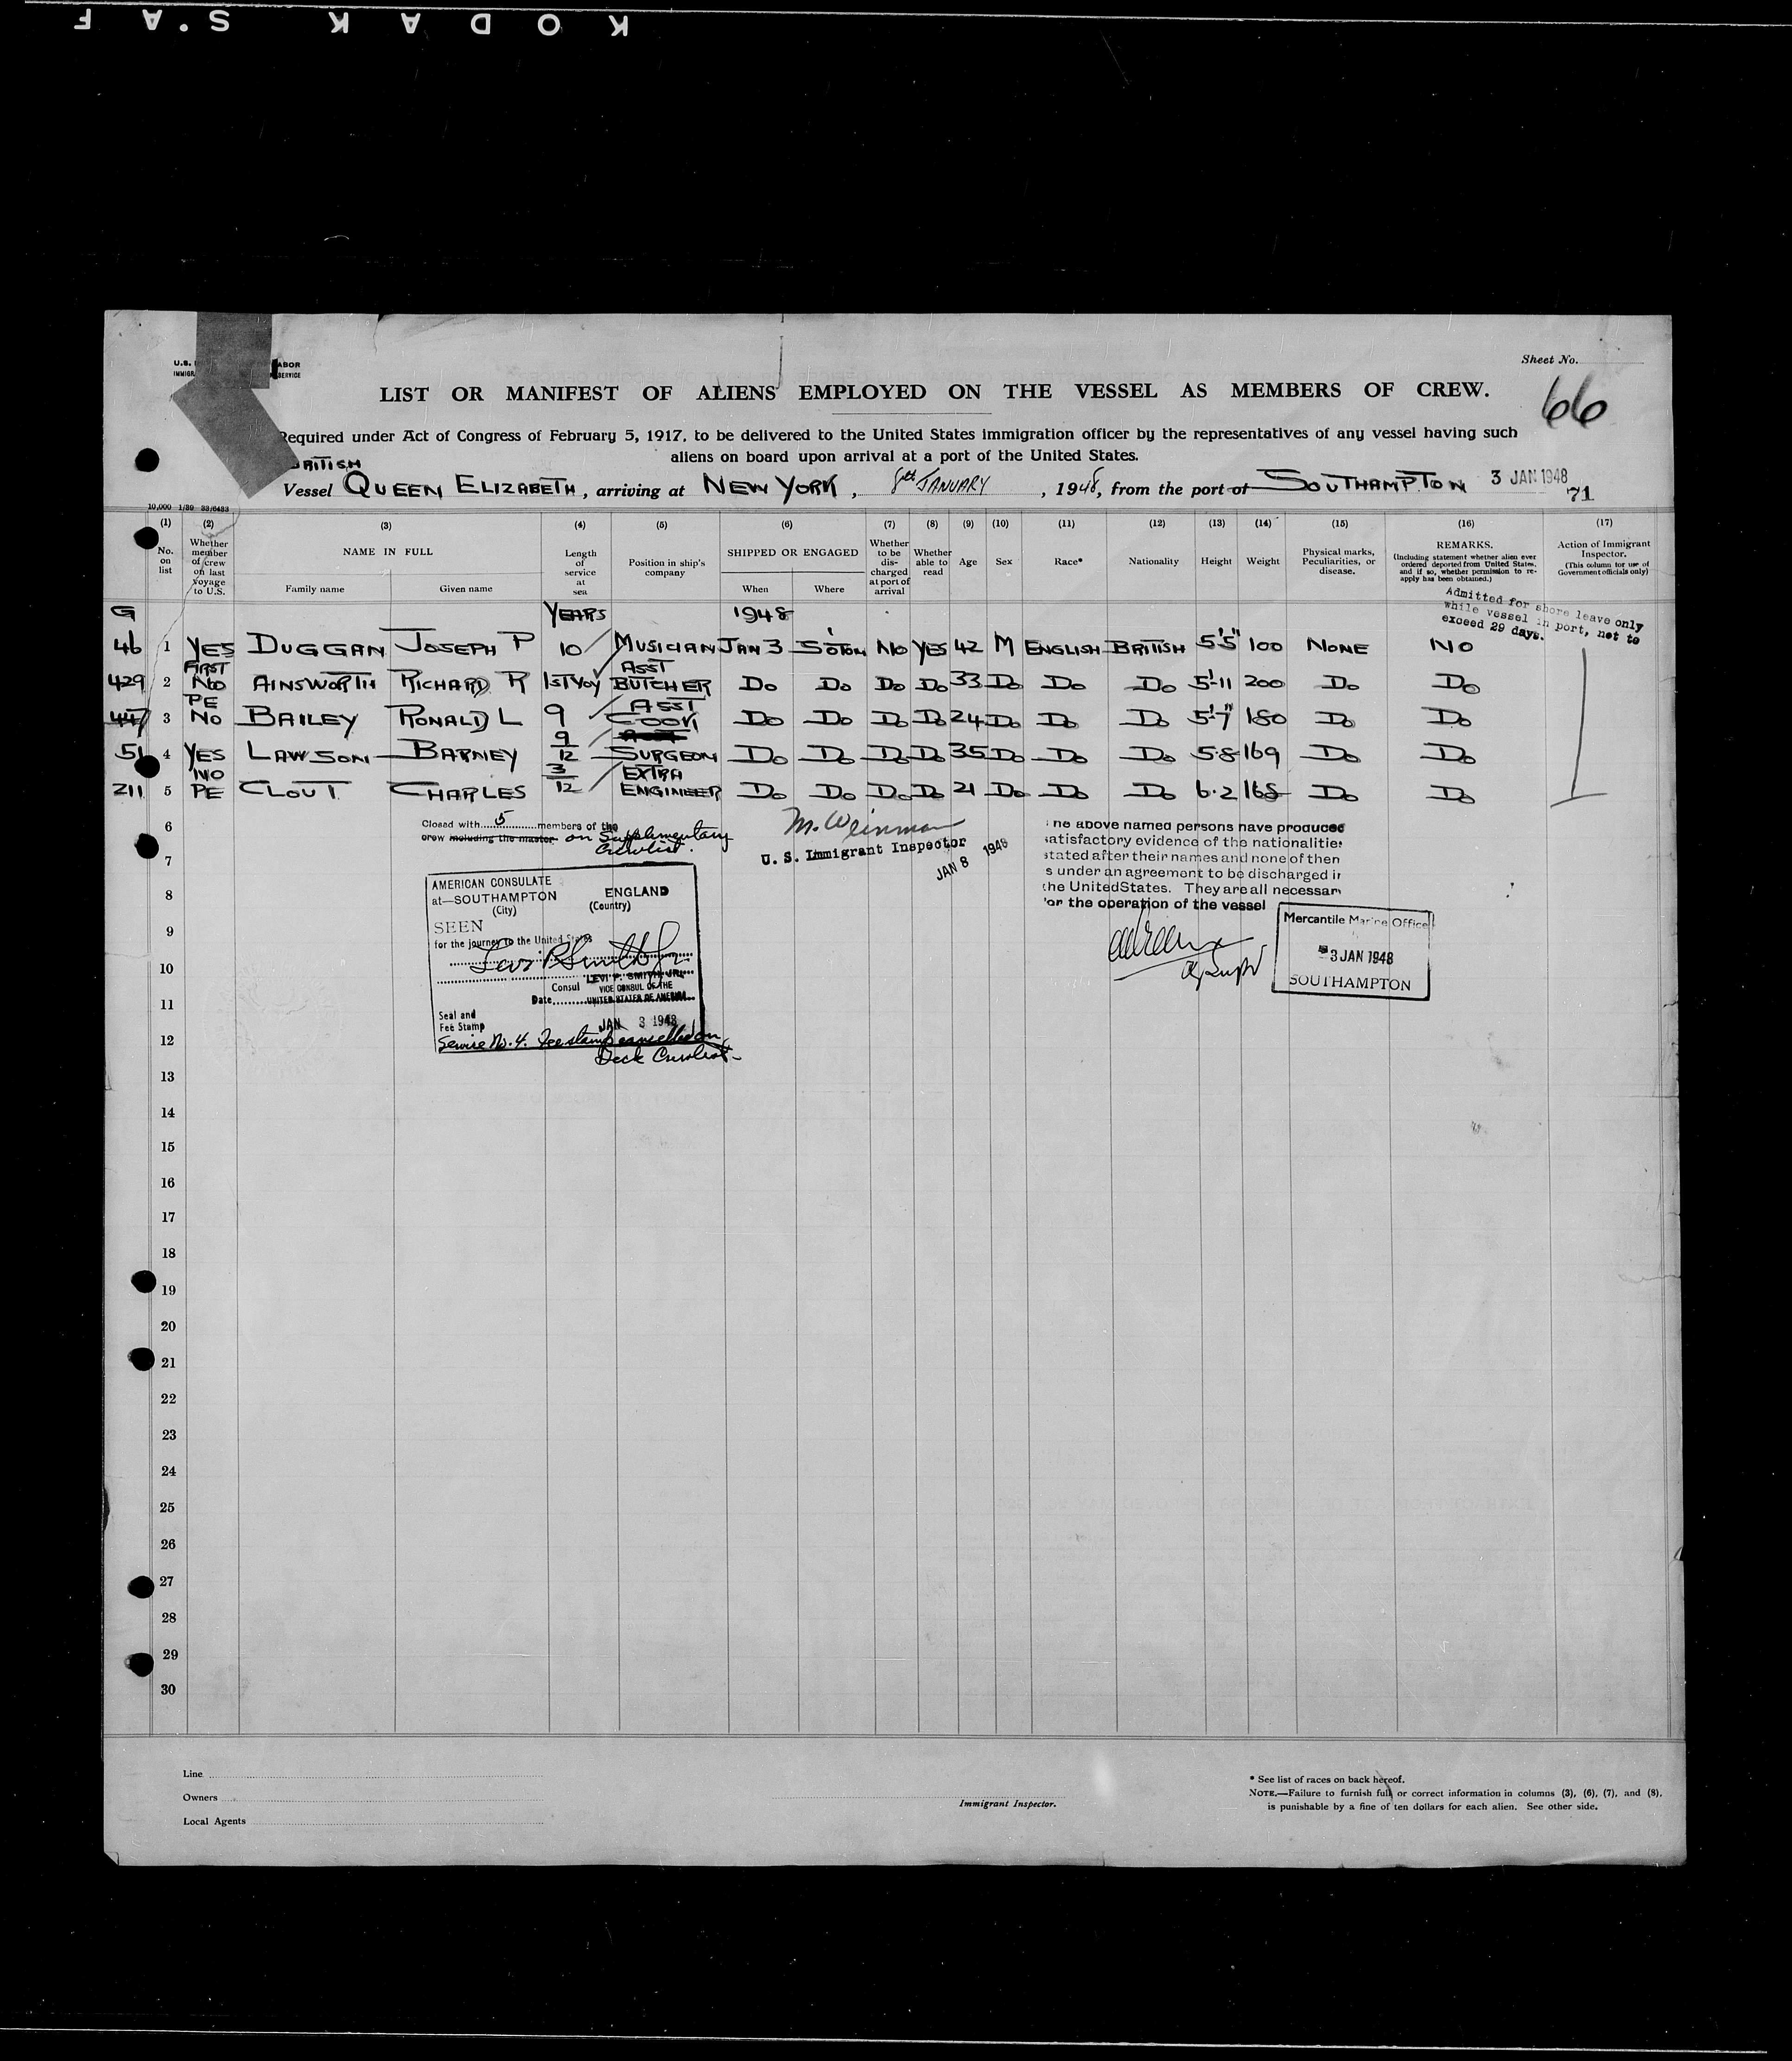 KODAK S.AF
U.S. ABOR
IMMIGR SERVICE
Sheet No.
66
LIST OR MANIFEST OF ALIENS EMPLOYED ON THE VESSEL AS MEMBERS OF CREW.
Required under Act of Congress of February 5, 1917, to be delivered to the United States immigration officer by the representatives of any vessel having such
aliens on board upon arrival at a port of the United States.
BRITISH
Vessel QUEEN ELIZABETH, arriving at NEW YORK, 8th JANUARY, 1948, from the port of SOUTHAMPTON 3 JAN 1948
71
10,000 1/39 33/6433
(1) (2) (3) (4) (5) (6) (7) (8) (9) (10) (11) (12) (13) (14) (15) (16) (17)
No. on list
Whether member of crew on last voyage to U.S.
NAME IN FULL
Family name Given name
Length of service at sea
Position in ship's company
SHIPPED OR ENGAGED
When Where
Whether to be discharged at port of arrival
Whether able to read
Age
Sex
Race*
Nationality
Height
Weight
Physical marks, Peculiarities, or disease.
REMARKS.
(Including statement whether alien ever ordered deported from United States, and if so, whether permission to re-apply has been obtained.)
Action of Immigrant Inspector.
(This column for use of Government officials only)
Admitted for shore leave only
while vessel in port, not to
exceed 29 days.
G YEARS 1948
46 1 YES DUGGAN JOSEPH P 10 MUSICIAN JAN 3 S'OTON NO YES 42 M ENGLISH BRITISH 5'5" 100 NONE NO
FIRST ASST
429 2 NO AINSWORTH RICHARD R 1ST VOY BUTCHER DO DO DO DO 33 DO DO DO 5'-11 200 DO DO
PE ASST
447 3 NO BAILEY RONALD L 9 COOK DO DO DO DO 24 DO DO DO 5'-7" 180 DO DO
51 4 YES LAWSON BARNEY 9/12 SURGEON DO DO DO DO 35 DO DO DO 5.8 169 DO DO
NO EXTRA
211 5 PE CLOUT CHARLES 3/12 ENGINEER DO DO DO DO 21 DO DO DO 6.2 168 DO DO
Closed with 5 members of the
crew including the master on Supplimentary
Crewlist.
M. Weinman
U. S. Immigrant Inspector
JAN 8 1948
he above named persons have produced
satisfactory evidence of the nationalities
stated after their names and none of them
s under an agreement to be discharged in
the United States. They are all necessary
for the operation of the vessel
AMERICAN CONSULATE
at—SOUTHAMPTON ENGLAND
(City) (Country)
SEEN
for the journey to the United States
Levi P Smith Jr
LEVI P. SMITH, JR.
Consul VICE CONSUL OF THE
Date UNITED STATES OF AMERICA
Seal and
Fee Stamp JAN 3 1948
Service No. 4. Fee stamp cancelled on
Deck Crewlist
Mercantile Marine Office
3 JAN 1948
SOUTHAMPTON
6
7
8
9
10
11
12
13
14
15
16
17
18
19
20
21
22
23
24
25
26
27
28
29
30
Line
Owners
Local Agents
Immigrant Inspector.
* See list of races on back hereof.
NOTE.—Failure to furnish full or correct information in columns (3), (6), (7), and (8),
is punishable by a fine of ten dollars for each alien. See other side.